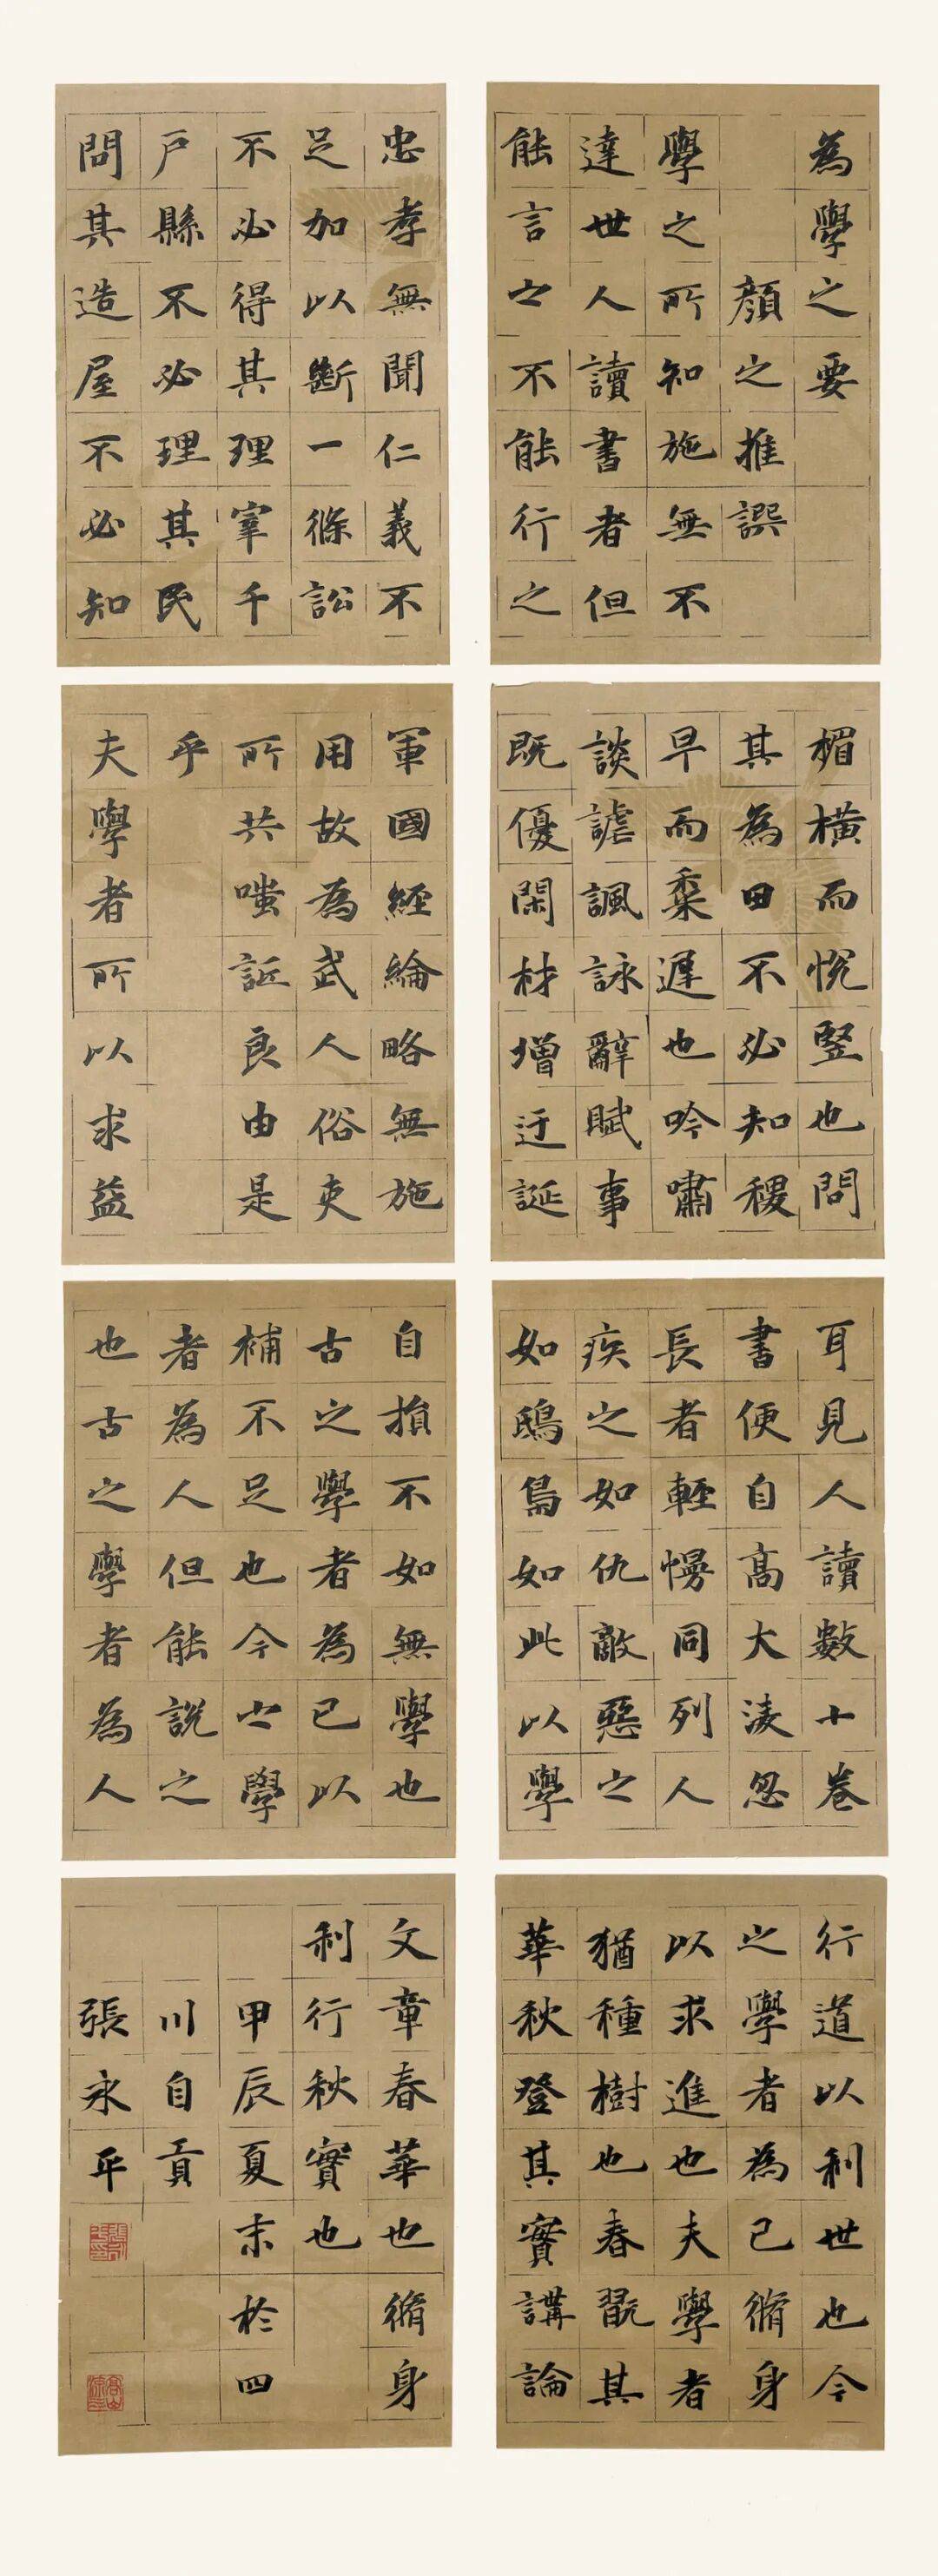 為學之要
顏之推譔
學之所知施無不
達世人讀書者但
能言之不能行之
忠孝無聞仁義不
足加以斷一條訟
不必得其理宰千
戶縣不必理其民
問其造屋不必知
楣橫而悅豎也問
其為田不必知稷
早而黍遲也吟嘯
談謔諷詠辭賦事
既優閑材增迂誕
軍國經綸略無施
用故為武人俗吏
所共嗤詆良由是
乎
夫學者所以求益
耳見人讀數十卷
書便自高大淩忽
長者輕慢同列人
疾之如仇敵惡之
如鴟鳥如此以學
自損不如無學也
古之學者為己以
補不足也今之學
者為人但能說之
也古之學者為人
行道以利世也今
之學者為己脩身
以求進也夫學者
猶種樹也春翫其
華秋登其實講論
文章春華也脩身
利行秋實也
甲辰夏末於四
川自貢
張永平